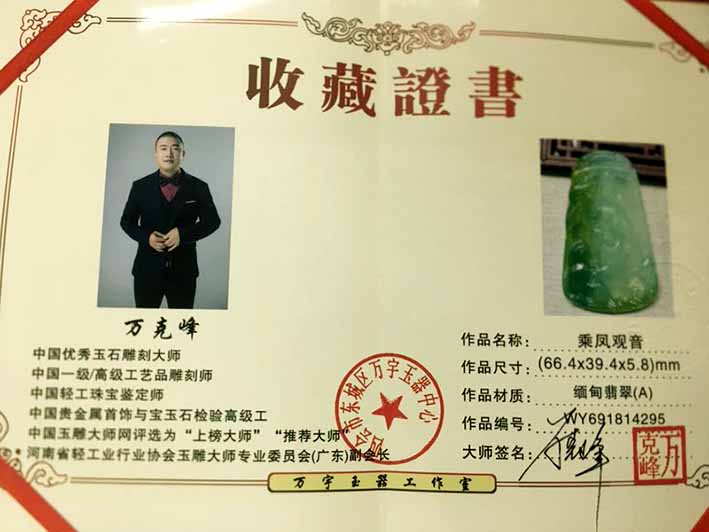 收藏證書
万克峰
中国优秀玉石雕刻大师
中国一级/高级工艺品雕刻师
中国轻工珠宝鉴定师
中国贵金属首饰与宝玉石检验高级工
中国玉雕大师网评选为“上榜大师”“推荐大师”
河南省轻工业行业协会玉雕大师专业委员会(广东)副会长
四会市东城区万字玉器中心
作品名称: 乘凤观音
作品尺寸: (66.4x39.4x5.8)mm
作品材质: 缅甸翡翠(A)
作品编号: WY691814295
大师签名:
万克峰
万字玉器工作室